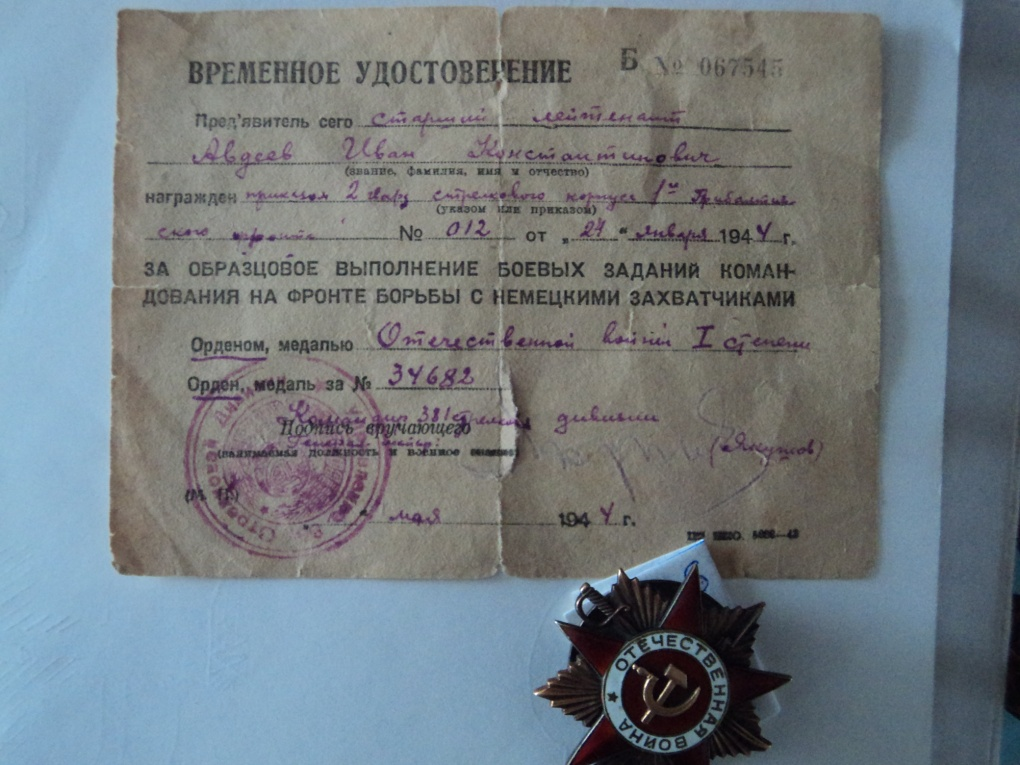 ВРЕМЕННОЕ УДОСТОВЕРЕНИЕ Б № 067545
Пред'явитель сего старший лейтенант
Авдеев Иван Константинович
(звание, фамилия, имя и отчество)
награжден приказом 2 гвард стрелкового корпуса 1го Прибалтий-
(указом или приказом)
ского фронта № 012 от „ 27 “ января 1944 г.
ЗА ОБРАЗЦОВОЕ ВЫПОЛНЕНИЕ БОЕВЫХ ЗАДАНИЙ КОМАН-
ДОВАНИЯ НА ФРОНТЕ БОРЬБЫ С НЕМЕЦКИМИ ЗАХВАТЧИКАМИ
Орденом, медалью Отечественной войны I степени
Орден, медаль за № 34682
Командир 381 стрелковой дивизии
Подпись вручающего
Генерал майор (Якушов)
(занимаемая должность и военное звание)
(М. П.)
мая 1944 г.
ОТЕЧЕСТВЕННАЯ ВОЙНА